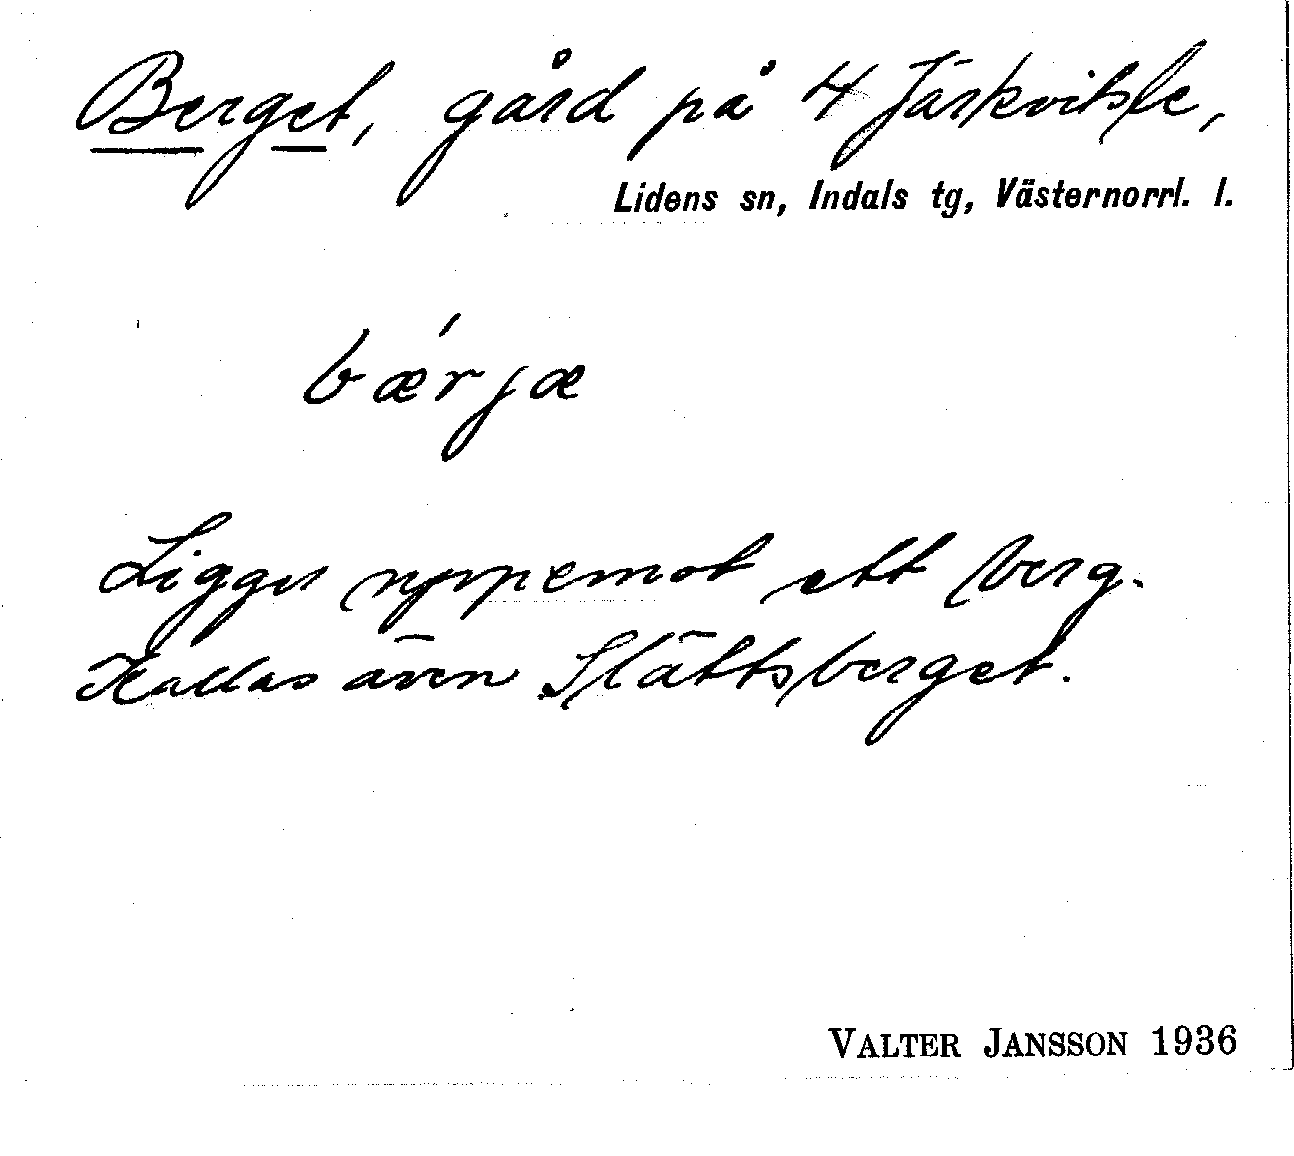 Berget, gård på 4 Järkvitsle,
Lidens sn, Indals tg, Västernorrl. l.
bǽrjæ
Ligger uppemot ett berg.
Kallas även Slättsberget.
VALTER JANSSON 1936